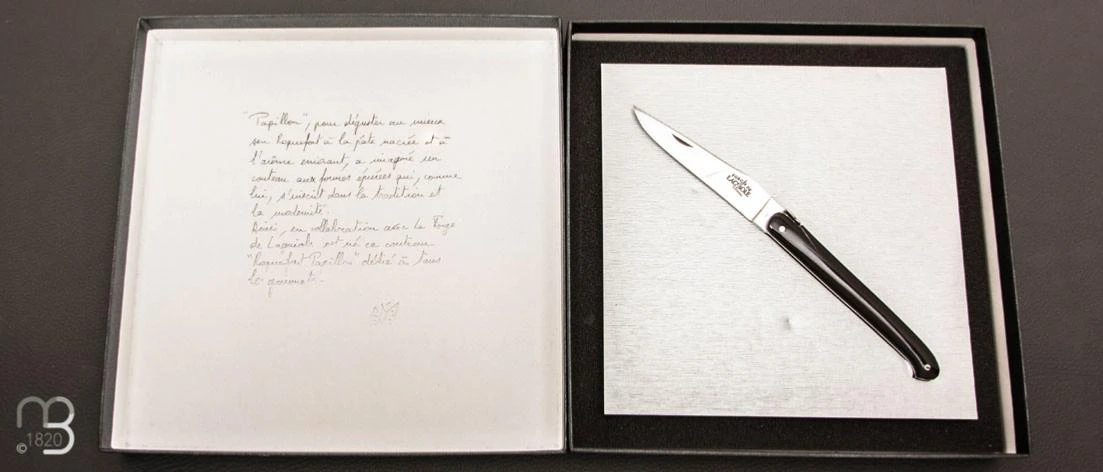 "Papillon", pour déguster au mieux
son Roquefort à la pâte nacrée et à
l'arôme enivrant, a imaginé un
couteau aux formes épurées qui, comme
lui, s'inscrit dans la tradition et
la modernité.
Ainsi, en collaboration avec La Forge
de Laguiole est né ce couteau
"Roquefort Papillon" dédié à tous
les gourmets.
FORGE DE
LAGUIOLE
©1820